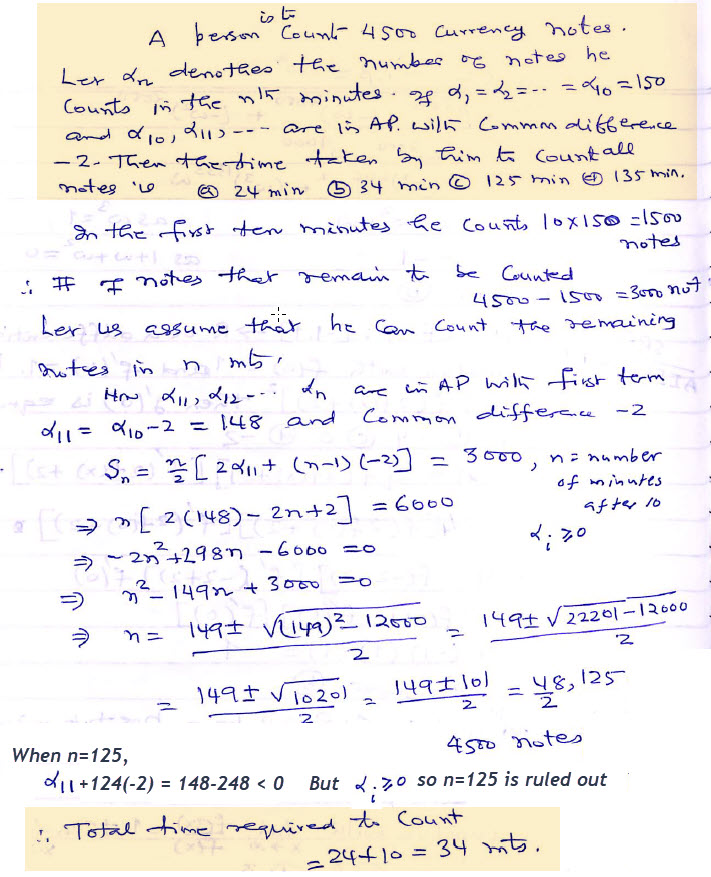 is to
A person Count 4500 Currency notes.
Let αn denothes the number of notes he
Counts in the nth minutes. If α₁ = α₂ = -- = α₁₀ = 150
and α₁₀, α₁₁, --- are in AP. with Common difference
-2. Then the time taken by him to Count all
notes is (a) 24 min (b) 34 min (c) 125 min (d) 135 min.
In the first ten minutes he Counts 10×150 = 1500
notes
∴ # of notes that remain to be Counted
4500 - 1500 = 3000 not
Let us assume that he Can Count the remaining
notes in n mts,
Hr α₁₁, α₁₂ --- αn are in AP with first term
α₁₁ = α₁₀ - 2 = 148 and Common difference -2
Sn = n/2 [2α₁₁ + (n-1)(-2)] = 3000, n = number
of minutes
after 10
⇒ n[2(148) - 2n + 2] = 6000
αᵢ ≥ 0
⇒ -2n² + 298n - 6000 = 0
⇒ n² - 149n + 3000 = 0
⇒ n = 149 ± √(149)² - 12000 / 2 = 149 ± √22201 - 12000 / 2
= 149 ± √10201 / 2 = 149 ± 101 / 2 = 48/2, 125
4500 notes
When n=125,
α₁₁ +124(-2) = 148-248 < 0 But αᵢ ≥ 0 so n=125 is ruled out
∴ Total time required to Count
= 24 + 10 = 34 mts.